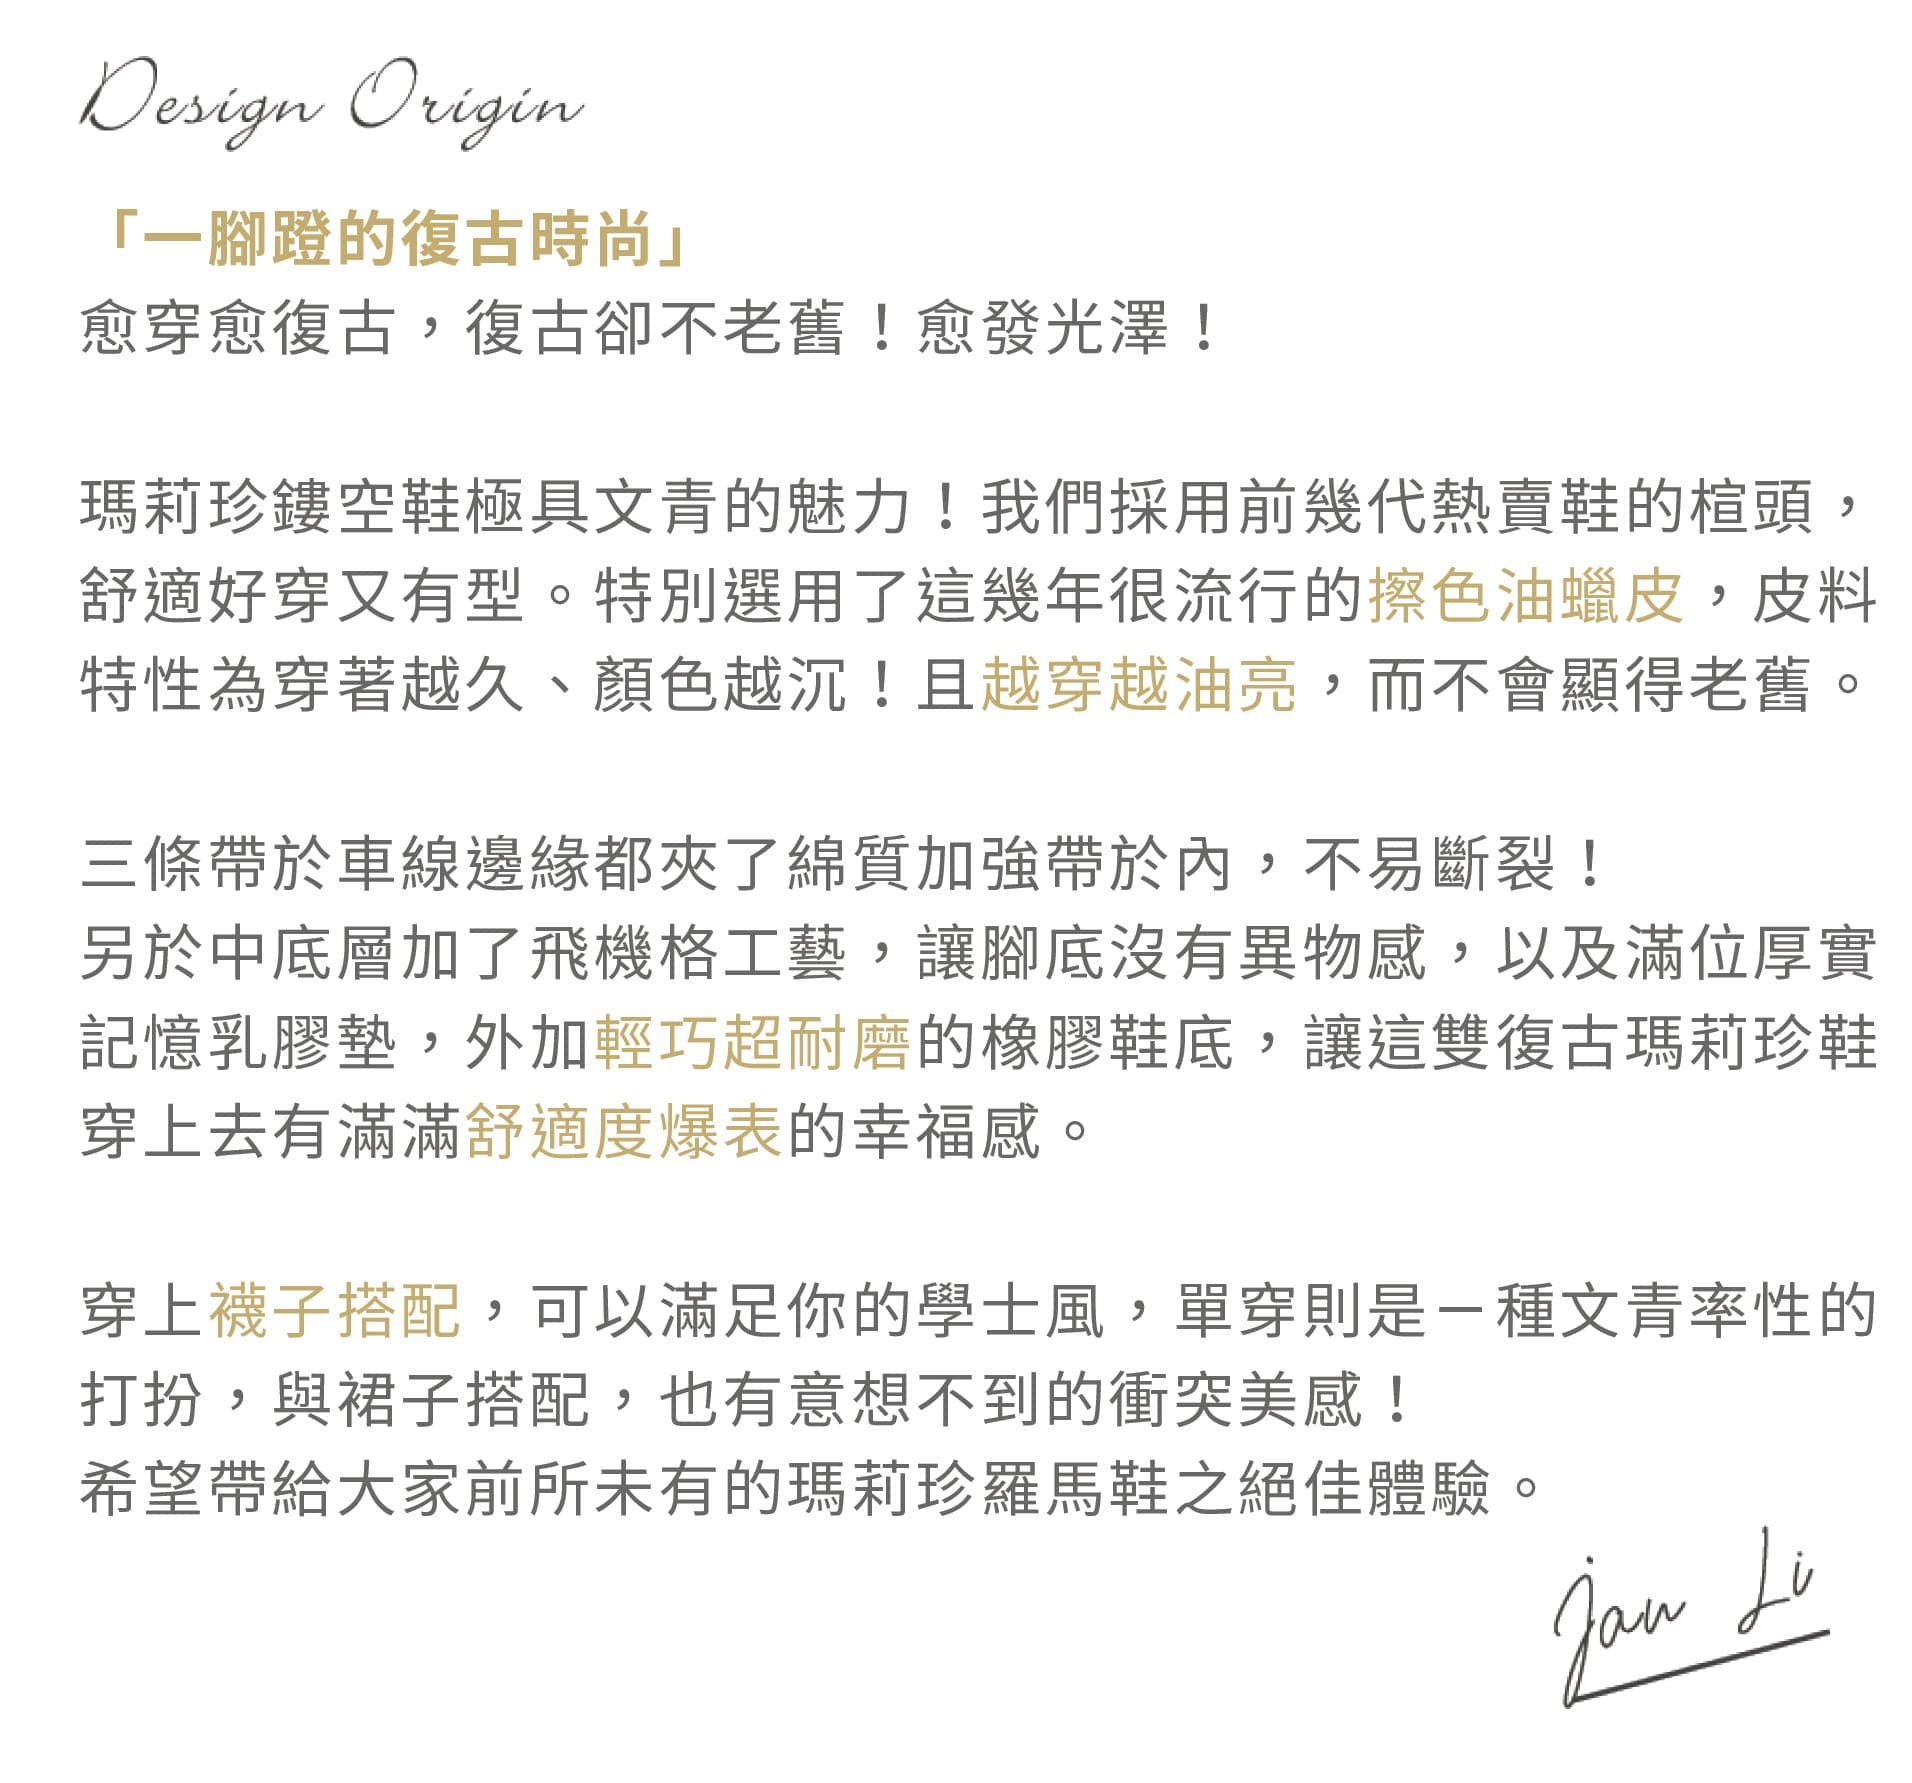 Design Origin
「一腳蹬的復古時尚」
愈穿愈復古，復古卻不老舊！愈發光澤！
瑪莉珍鏤空鞋極具文青的魅力！我們採用前幾代熱賣鞋的楦頭，
舒適好穿又有型。特別選用了這幾年很流行的擦色油蠟皮，皮料
特性為穿著越久、顏色越沉！且越穿越油亮，而不會顯得老舊。
三條帶於車線邊緣都夾了綿質加強帶於內，不易斷裂！
另於中底層加了飛機格工藝，讓腳底沒有異物感，以及滿位厚實
記憶乳膠墊，外加輕巧超耐磨的橡膠鞋底，讓這雙復古瑪莉珍鞋
穿上去有滿滿舒適度爆表的幸福感。
穿上襪子搭配，可以滿足你的學士風，單穿則是一種文青率性的
打扮，與裙子搭配，也有意想不到的衝突美感！
希望帶給大家前所未有的瑪莉珍羅馬鞋之絕佳體驗。
Jan Li